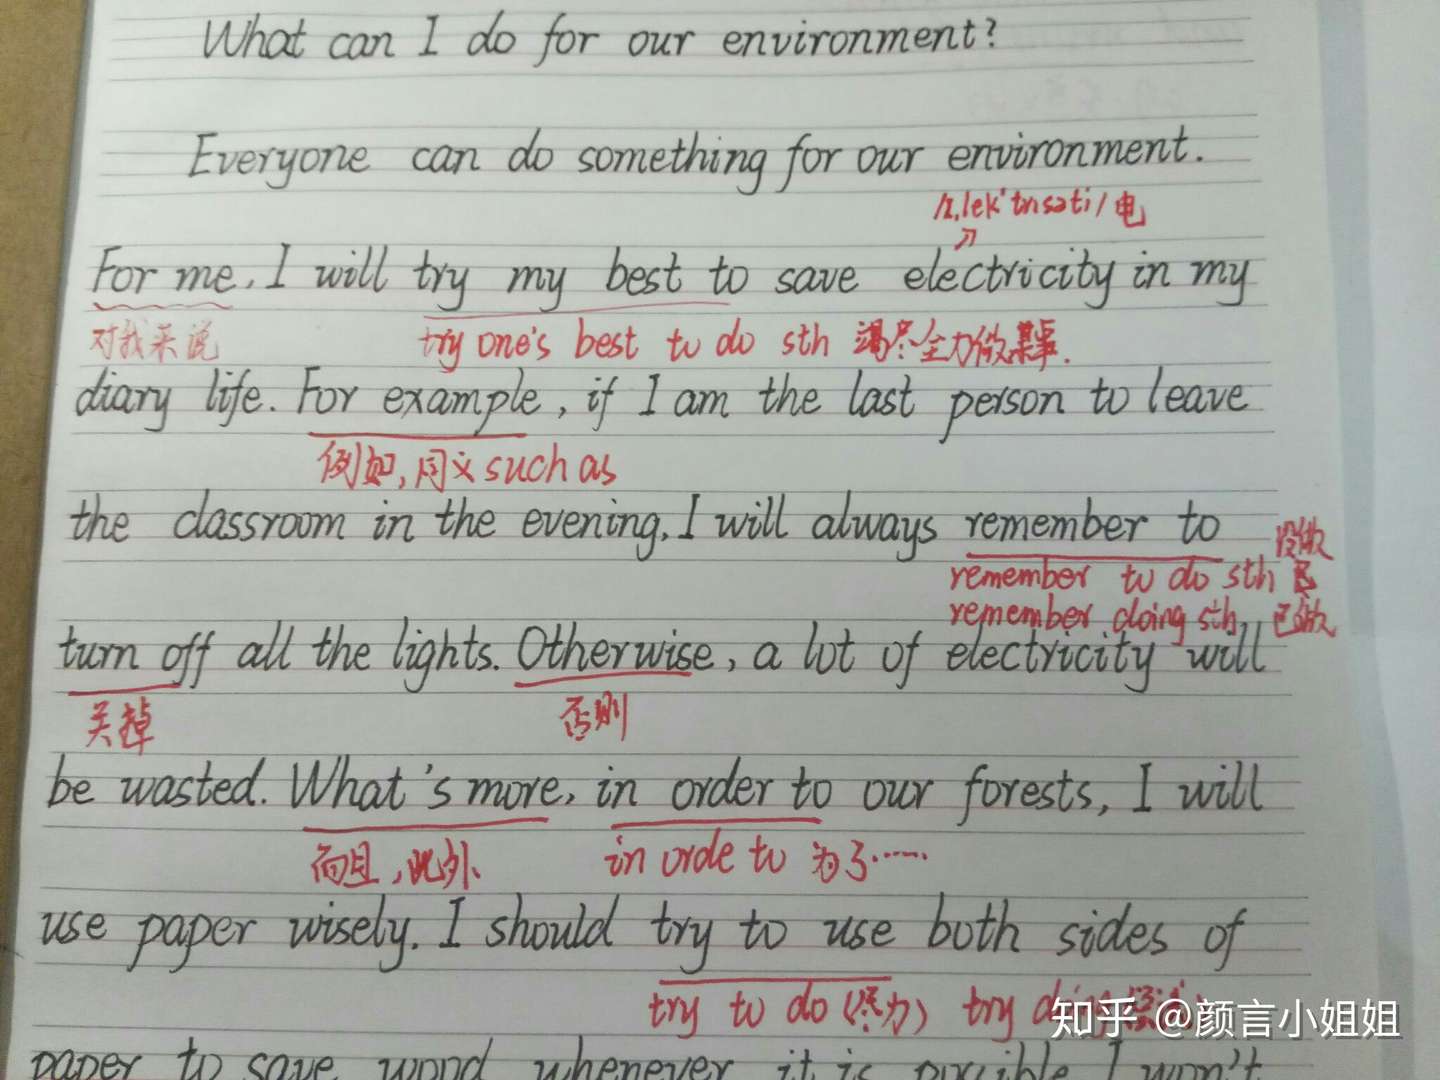 What can I do for our environment?
Everyone can do something for our environment.
/ɪ,lek'trɪsəti/ 电
For me, I will try my best to save electricity in my
对我来说 try one's best to do sth 竭尽全力做某事.
diary life. For example, if I am the last person to leave
例如, 同义 such as
the classroom in the evening, I will always remember to
没做
remember to do sth
remember doing sth, 已做
turn off all the lights. Otherwise, a lot of electricity will
关掉 否则
be wasted. What's more, in order to our forests, I will
而且, 此外 in orde to 为了……
use paper wisely. I should try to use both sides of
try to do (尽力) try doing
知乎 @颜言小姐姐
paper to save wood whenever it is possible I won't